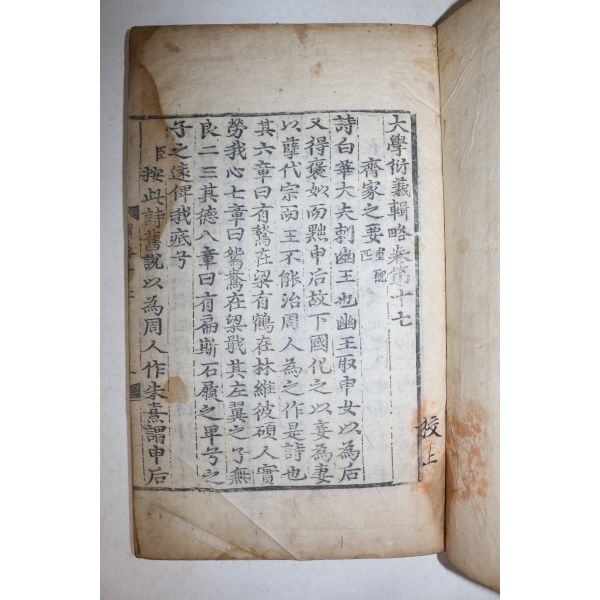 大學衍義輯略卷第十七
齊家之要
重妃匹
詩白華大夫刺幽王也幽王取申女以為后
又得褒姒而黜申后故下國化之以妾為妻
以孽代宗而王不能治周人為之作是詩也
其六章曰有鶖在梁有鶴在林維彼碩人實
勞我心七章曰鴛鴦在梁戢其左翼之子無
良二三其德八章曰有扁斯石履之卑兮之
子之遠俾我疧兮
臣按此詩舊說以為周人作朱熹謂申后
校上